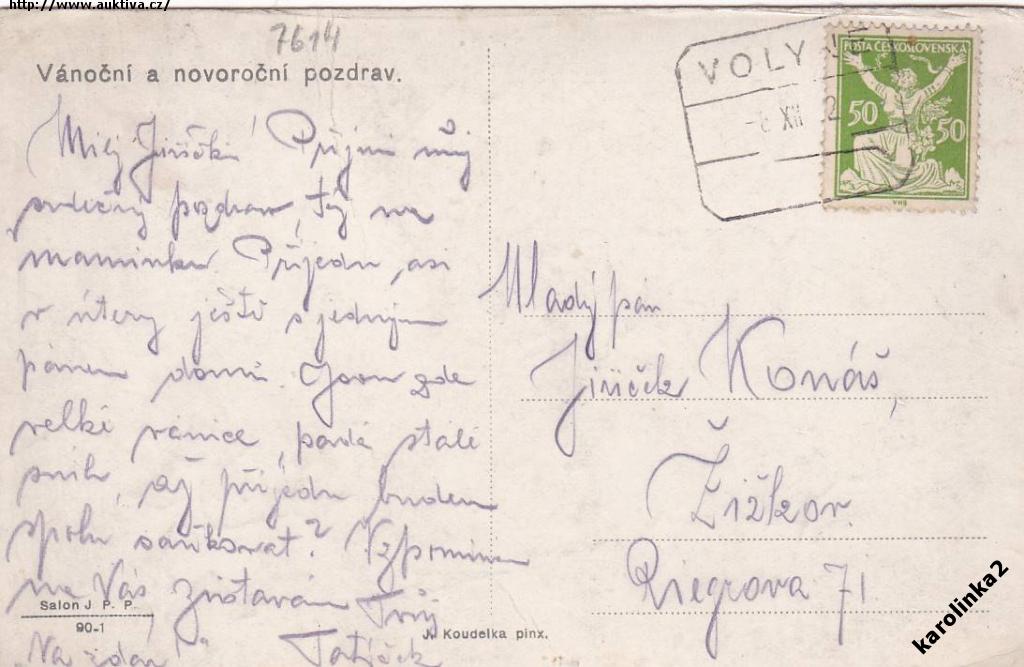 http://www.auktiva.cz/
7614
Vánoční a novoroční pozdrav.
Milý Jiříčki! Přijmi můj
srdečný pozdrav, ty na
maminku. Přijedu asi
v úterý ještě s jedným
pánem domů. Jsou zde
velké vánice, padá stále
sníh, až přijedu budem
spolu sáňkovat? Vzpomínám
na Vás zůstávám Tvůj
"Na zdar" Tatíček
Salon J. P. P.
90-1
J. Koudelka pinx.
VOLYNĚ
XII
POŠTA ČESKOSLOVENSKÁ
50 50
Mladý pán
Jiříček Konáš,
Žižkov.
Riegrova 71
karolinka2